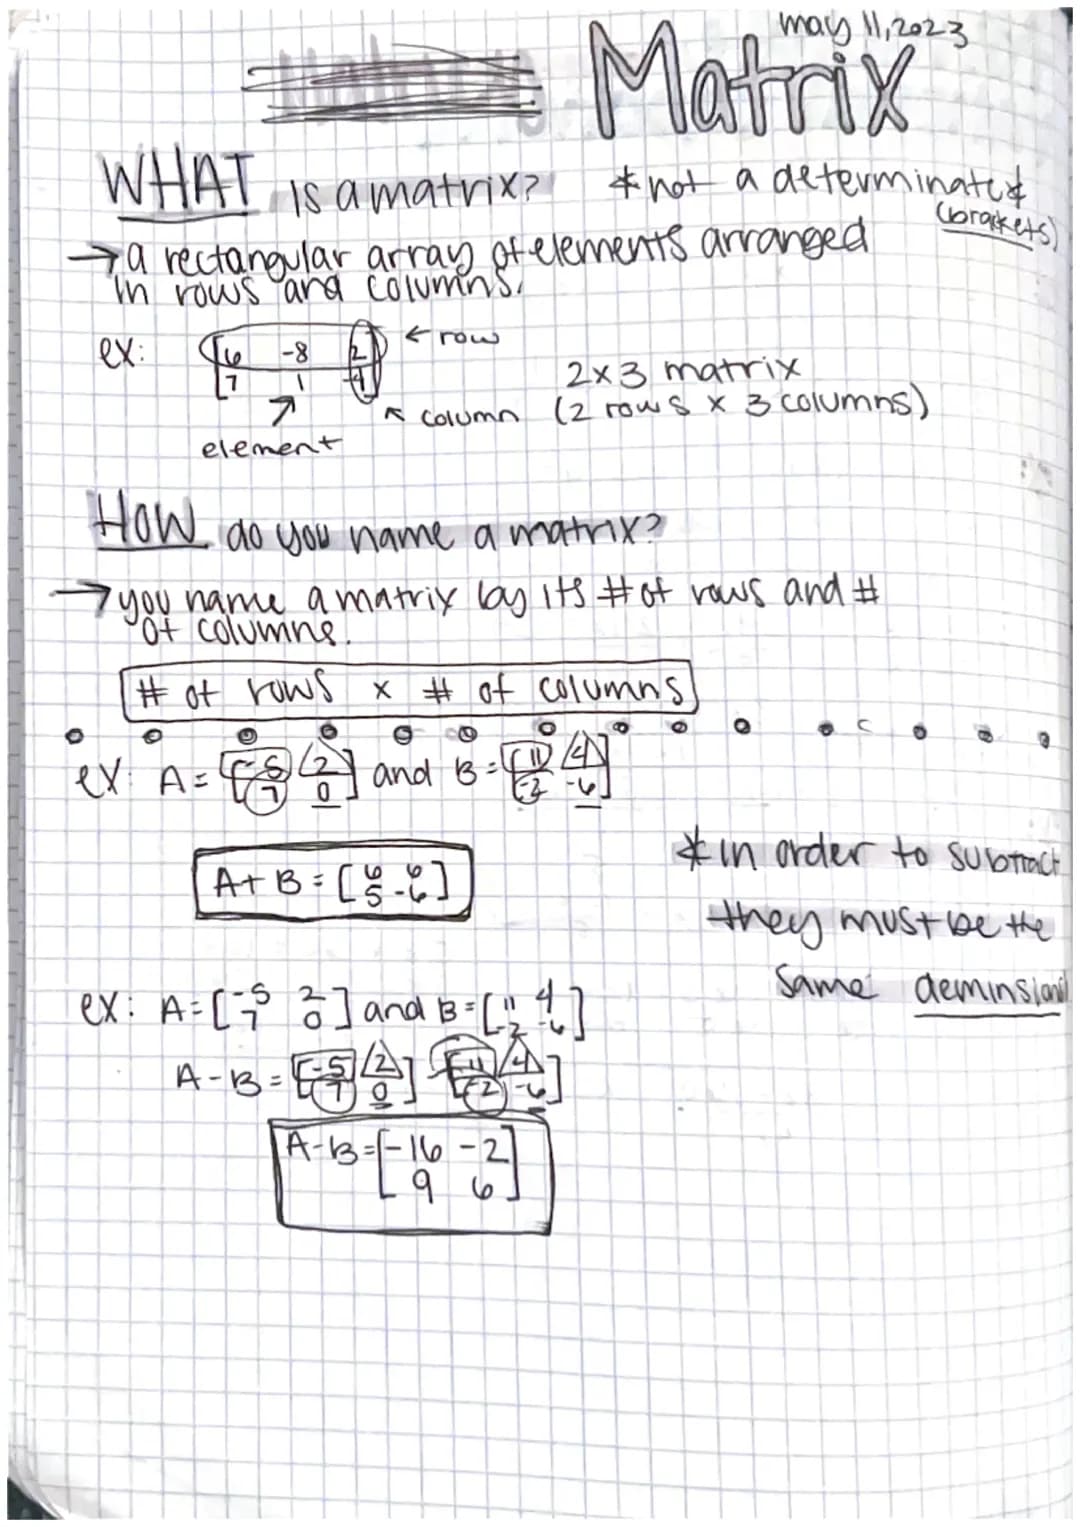 may 11, 2023
Matrix
WHAT is a matrix? * not a determinate *
(brackets)
→ a rectangular array of elements arranged
in rows and columns.
ex: [6 -8 2] ← row
[7 1 -4]
2x3 matrix
↖ column (2 rows x 3 columns)
element
HOW do you name a matrix?
→ you name a matrix by its # of rows and #
of columns.
# of rows x # of columns
ex: A = [-5 2] and B = [11 4]
[7 0] [-2 -6]
* in order to subtract
A + B = [6 6]
[5 -6]
they must be the
same deminsions
ex: A = [-5 2] and B = [11 4]
[7 0] [-2 -6]
A - B = [-5 2] [11 4]
[7 0] [-2 -6]
A - B = [-16 -2]
[9 6]